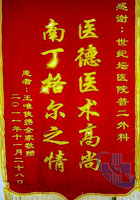 感谢：世纪坛医院普二外科
医德医术高尚
南丁格尔之情
患者：王唯侠携全家敬赠
二〇一一年十一月二十八日